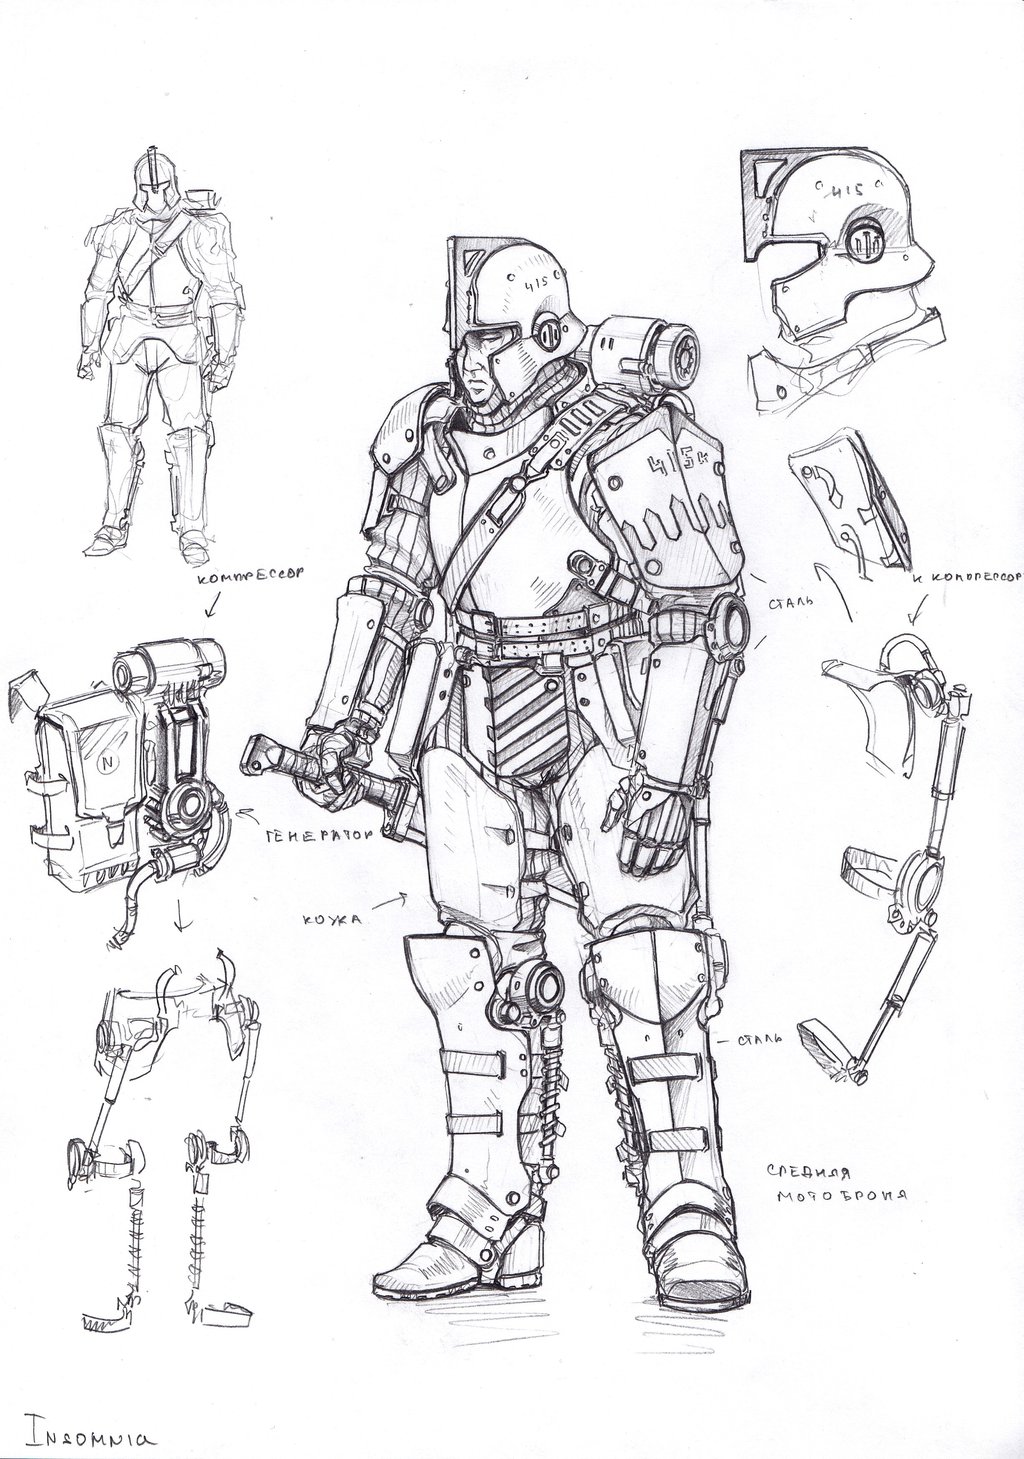 415
415
415к
КОМПРЕССОР
К КОМПРЕССОР
СТАЛЬ
N
ГЕНЕРАТОР
КОЖА
СТАЛЬ
СРЕДНЯЯ
МОТО БРОНЯ
INSOMNIA